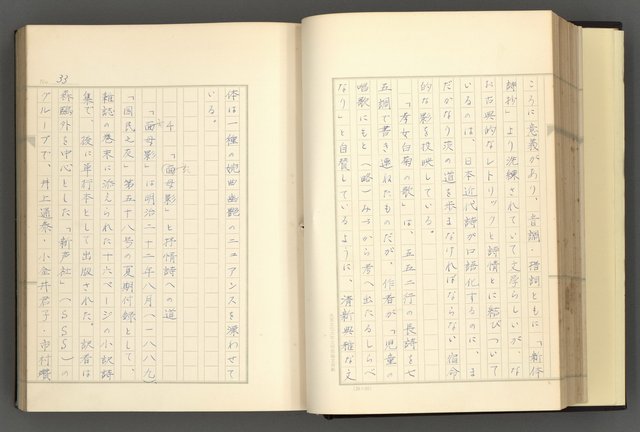 こうに意義があり、音調・措詞ともに「新体
詩抄」より洗練されていて文学らしいが、な
お古典的なレトリックと詩情とに結びついて
いるのは、日本近代詩が口語化するのに、ま
だかなり茨の道を歩まなければならない宿命
的な影を投映している。
「孝女白菊の歌」は、五五二行の長詩を七
五調で書き連ねたものだが、作者が「児童の
唱歌にもと(略)みづから考へ出たるしらべ
なり」と自賛しているように、清新典雅な文
33
体は一種の婉曲幽艶のニュアンスを漂わせて
いる。
4 「面母影」と抒情詩への道
「面母影」は明治二十二年八月(一八八九)
「国民之友」第五十八号の夏期付録として、
雑誌の巻末に添えられた十六ページの小訳詩
集で、後に単行本として出版された。訳者は
森鷗外を中心とした「新声社」(SSS)の
グループで、井上通泰・小金井君子・市村瓚